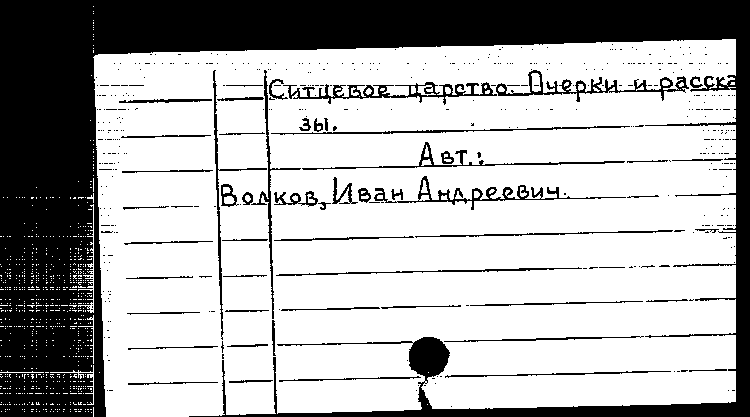 Ситцевое царство. Очерки и расска
зы.
Авт.:
Волков, Иван Андреевич.